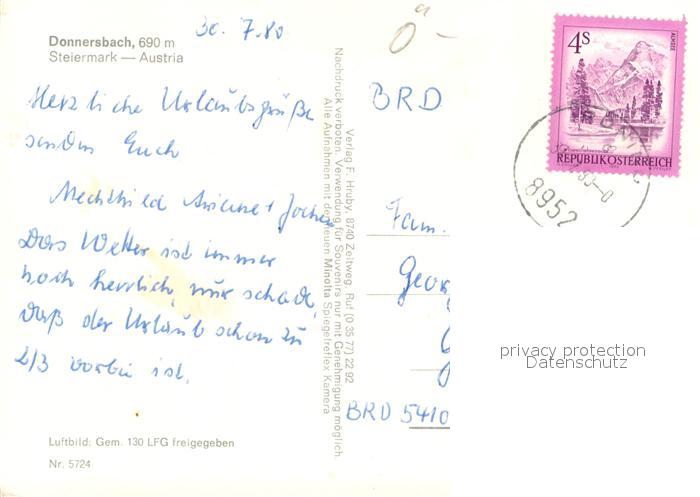 30. 7. 80
Donnersbach, 690 m
Steiermark — Austria
Herzliche Urlaubsgrüße
senden Euch
Mechthild Ariane + Jochen
Das Wetter ist immer
noch herrlich, nur schade,
daß der Urlaub schon zu
2/3 vorbei ist.
Luftbild: Gem. 130 LFG freigegeben
Nr. 5724
Verlag F. Hruby, 8740 Zeltweg, Ruf (0 35 77) 22 92
Nachdruck verboten. Verwendung für Souvenirs nur mit Genehmigung möglich.
Alle Aufnahmen mit der neuen Minolta Spiegelreflex Kamera
BRD
Fam.
Geor
BRD 5410
4S
ALMSEE
REPUBLIK ÖSTERREICH
8952
privacy protection
Datenschutz